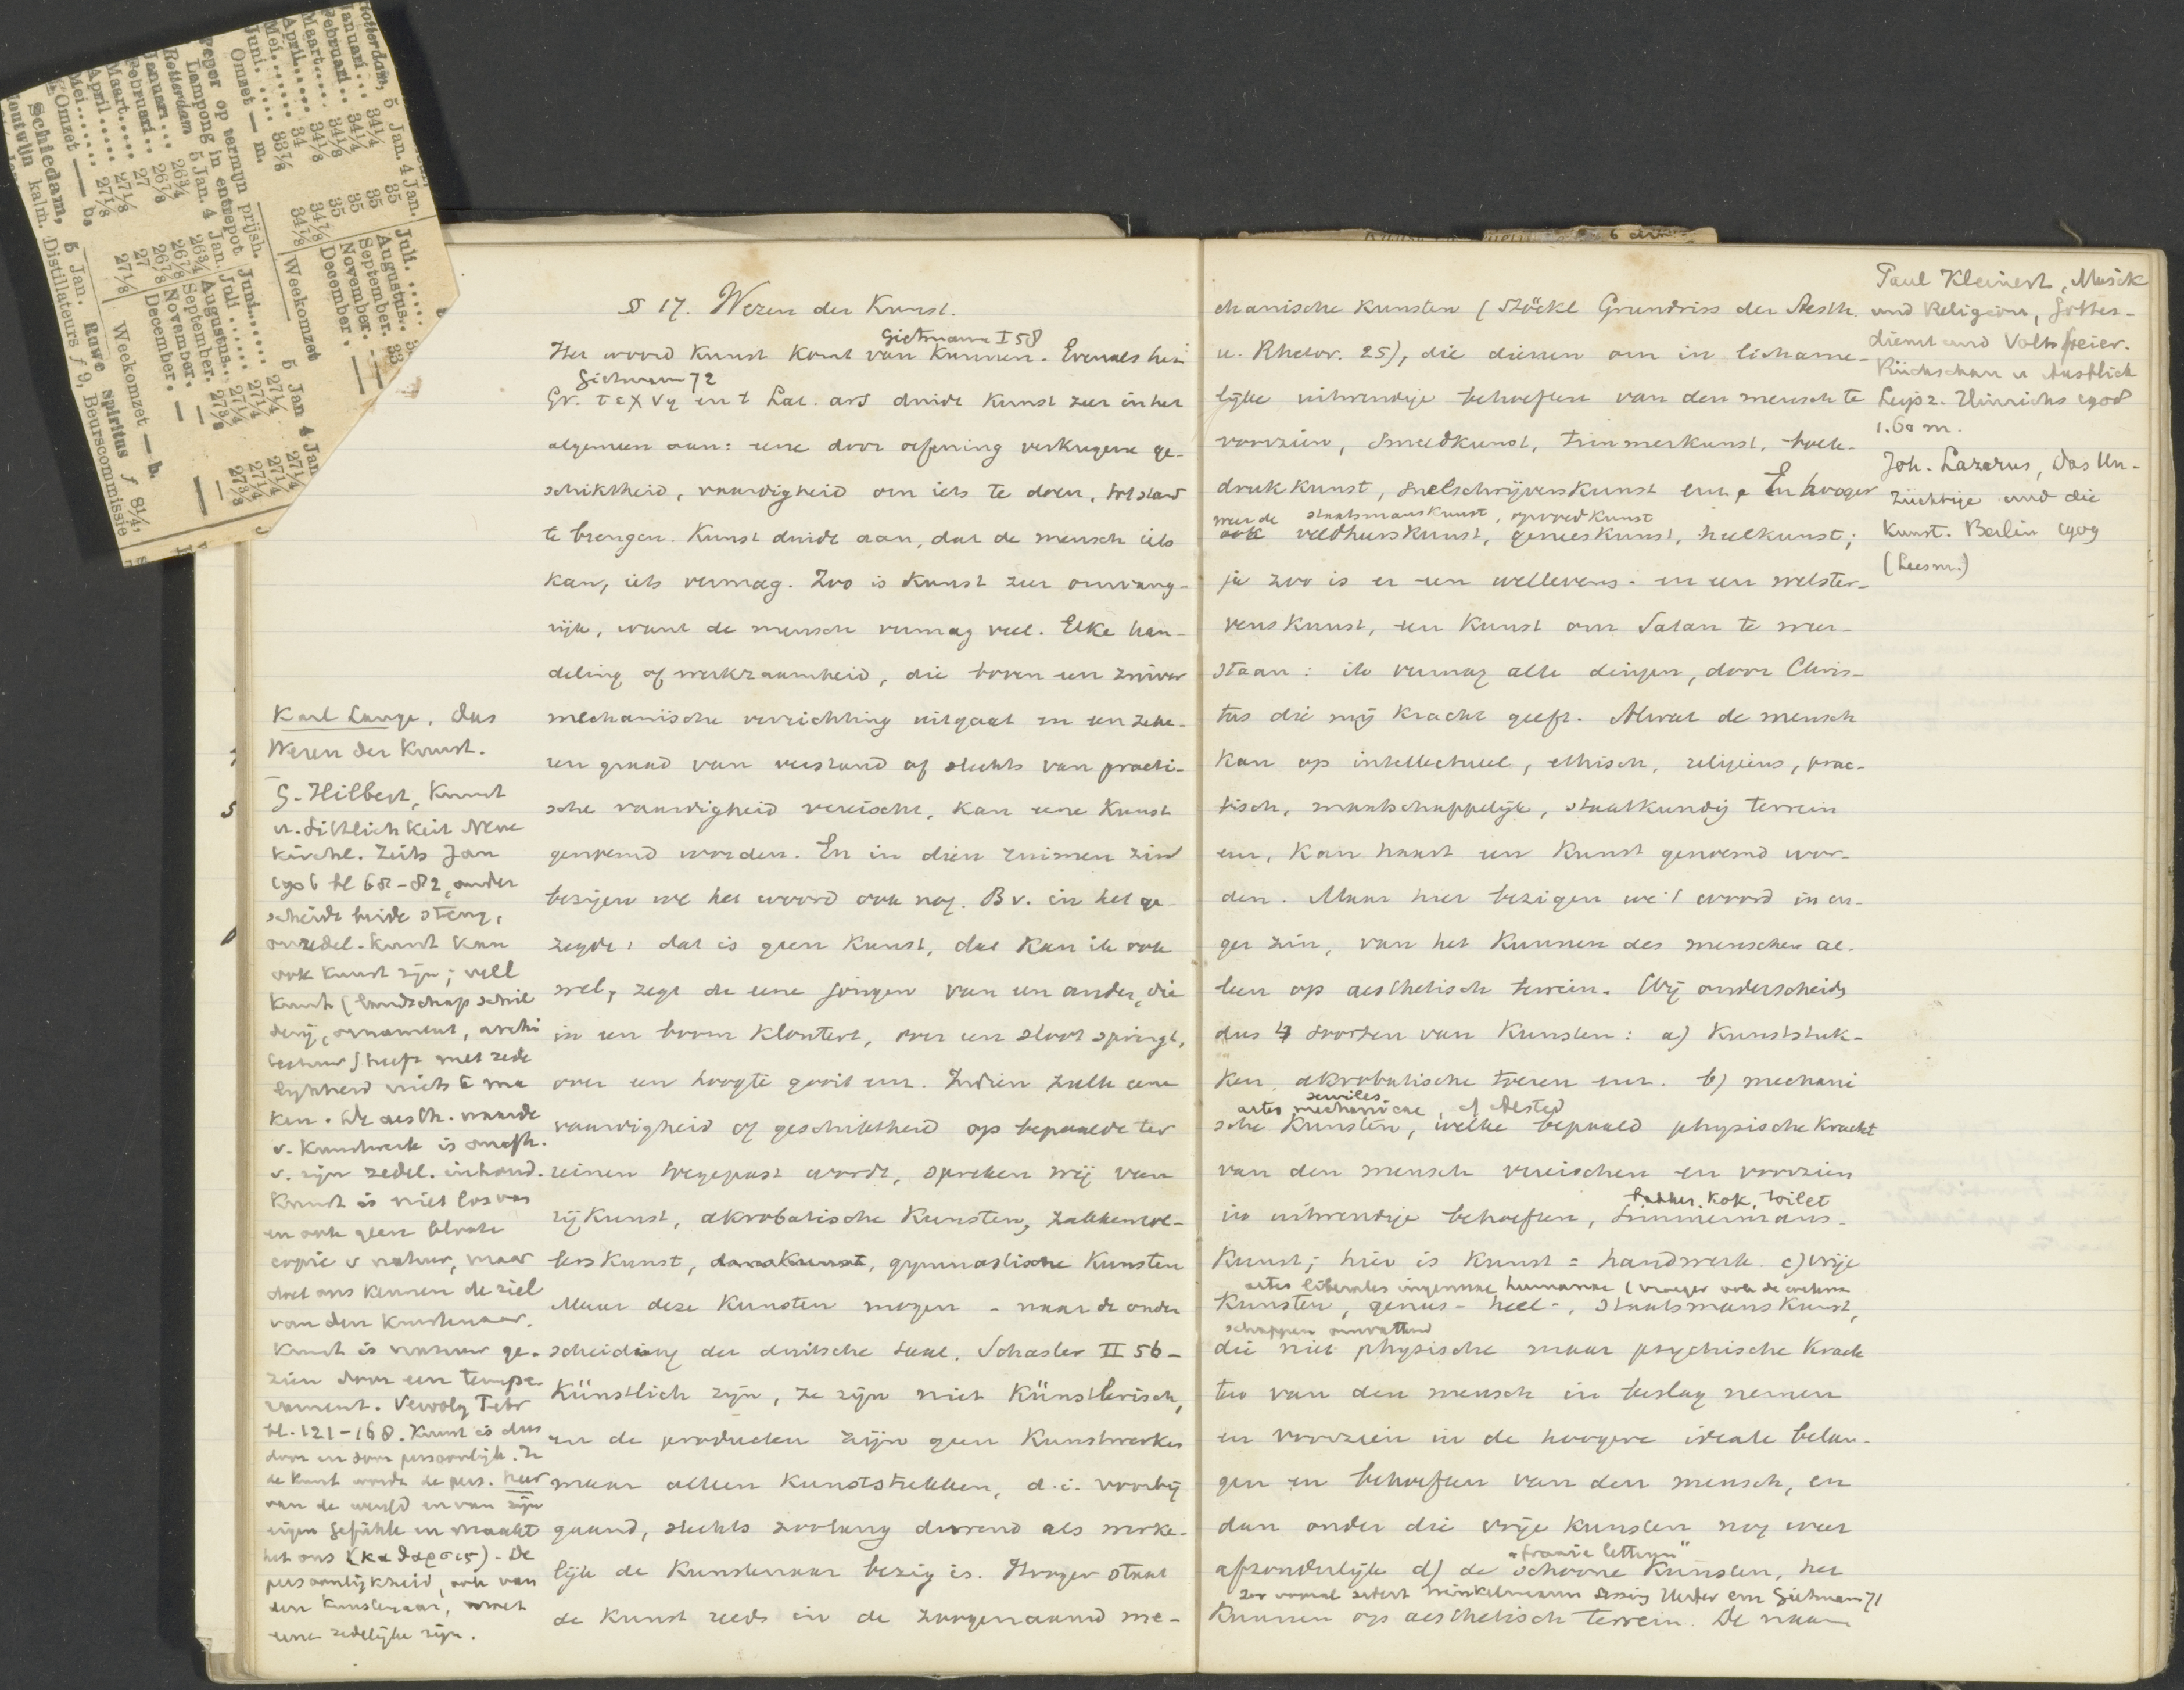 Rotterdam, 5 Jan. 4 Jan.
Januari... 34¼ 35
Februari.. 34¼ 35
Maart..... 34⅛ 35
April..... 34⅛ 35
Mei....... 34 34⅞
Juni. .... 33⅞ 34⅛
Omzet — m.
Juli. .....
Augustus..
September. 33
November. —
December. —
Weekomzet
Peper op termijn prijsh.
Lampong in entrepot
Rotterdam 5 Jan. 4 Jan.
Januari... 26¾ 26¾
Februari.. 26⅞ 26⅞
Maart..... 27 26⅞
April..... 27⅛ 27
Mei....... 27⅛ 27⅛
Omzet — b.
5 Jan 4 Jan
Juni...... 27¼ 27¼
Juli ..... 27¼ 27¼
Augustus.. 27¼ 27¼
September. 27⅜ 27⅜
November. — —
December. —
Weekomzet — b.
Schiedam, 5 Jan. Ruwe Spiritus f 8¼,
Moutwijn kalm. Distillateurs f 9, Beurscommissie
§ 17. Wezen der Kunst.
Gietmann I 58
Het woord Kunst komt van Kunnen. Evenals het
Gietmann 72
Gr. τεχνη en 't Lat. ars duidt Kunst zeer in het
algemeen aan: eene door oefening verkregene ge-
schiktheid, vaardigheid om iets te doen, tot stand
te brengen. Kunst duidt aan, dat de mensch iets
kan, iets vermag. Zoo is Kunst zeer omvang-
rijk, want de mensch vermag veel. Elke han-
deling of werkzaamheid, die boven een zuiver
mechanische verrichting uitgaat en een zeke-
ren graad van verstand of slechts van practi-
sche vaardigheid vereischt, kan eene Kunst
genoemd worden. En in dien ruimen zin
bezigen we het woord ook nog. Bv. in het ge-
zegde: dat is geen Kunst, dat kan ik ook
wel, zegt de eene jongen van een ander, die
in een boom klautert, over een sloot springt,
over een hoogte gooit enz. Indien zulk eene
vaardigheid of geschiktheid op bepaalde ter
reinen toegepast wordt, spreken wij van
rijkunst, akrobatische Kunsten, zakkenrol-
lerskunst, danskunst, gymnastische Kunsten
Maar deze Kunsten mogen - naar de onder
scheiding der duitsche taal, Schasler II 56 -
Künstlich zijn, ze zijn niet Künstlerisch,
en de producten zijn geen Kunstwerken
maar alleen Kunststukken, d.i. voorbij
gaand, slechts zoolang durend als werke-
lijk de Kunstenaar bezig is. Hooger staat
de Kunst reeds in de zoogenaamd me-
Karl Lange, das
Wesen der Kunst.
G. Hilbert, Kunst
u. Sittlichkeit Neue
Kirchl. Zeits Jan
1906 bl 68-82, onder
scheidt beide streng,
onzedel. Kunst kan
ook Kunst zijn; veel
Kunst (landschap schil
derij, ornament, archi
tectuur) heeft met zede
lijkheid niets te ma
ken. De aesth. waarde
v. Kunstwerk is onafh.
v. zijn zedel. inhoud.
Kunst is niet los van
en ook geen bloote
copie v natuur, maar
doet ons kennen de ziel
van den kunstenaar.
Kunst is natuur ge-
zien door een tempe-
rament. Vervolg Febr
bl. 121-168. Kunst is dus
door en door persoonlijk. In
de Kunst wordt de pers. heer
van de wereld en van zijn
eigen Gefühle en maakt
het ons (καθαρσις) - De
persoonlijkheid, ook van
den Kunstenaar, moet
eene zedelijke zijn.
chanische Kunsten (Stöckl Grundriss der Aesth.
u. Rhetor. 25), die dienen om in lichame-
lijke uitwendige behoeften van den mensch te
voorzien, smeedkunst, timmerkunst, boek-
drukkunst, snelschrijverskunst enz. En hooger
weer de staatsmanskunst, opvoedkunst
ook veldheerskunst, geneeskunst, heelkunst;
ja zoo is er een wellevens- en een welster-
venskunst, een Kunst om Satan te weer-
staan: ik vermag alle dingen, door Chris-
tus die mij kracht geeft. Alwat de mensch
kan op intellectueel, ethisch, religieus, prac-
tisch, maatschappelijk, staatkundig terrein
enz, kan haast een Kunst genoemd wor-
den. Maar hier bezigen we 't woord in en-
ger zin, van het Kunnen des menschen al-
leen op aesthetisch terrein. Wij onderscheiden
dus 4 soorten van Kunsten: a) Kunststuk-
ken, akrobatische toeren enz. b) mechani
serviles
artes mechanicae, cf Alsted
sche Kunsten, welke bepaald physische Kracht
van den mensch vereischen en voorzien
bakker, kok, toilet
in uitwendige behoeften, timmermans-
kunst; hier is Kunst = handwerk. c) vrije
artes liberales ingenuae humanae (vroeger ook de weten
Kunsten, genees- heel-, staatsmanskunst,
schappen omvattend
die niet physische maar psychische Krach
ten van den mensch in beslag nemen
en voorzien in de hoogere ideale belan-
gen en behoeften van den mensch, en
dan onder die vrije Kunsten nog weer
„fraaie letteren"
afzonderlijk d) de schoone Kunsten, het
zoo vooral sedert Winkelmann Lessing Herder enz Gietmann 71
Kunnen op aesthetisch terrein. De naam
Paul Kleinert, Musik
und Religion, Gottes-
dienst und Volksfeier.
Rückschau u Ausblick
Leipz. Hinrichs 1908
1.60 m.
Joh. Lazarus, Das Un-
züchtige und die
Kunst. Berlin 1909
(Leesm.)